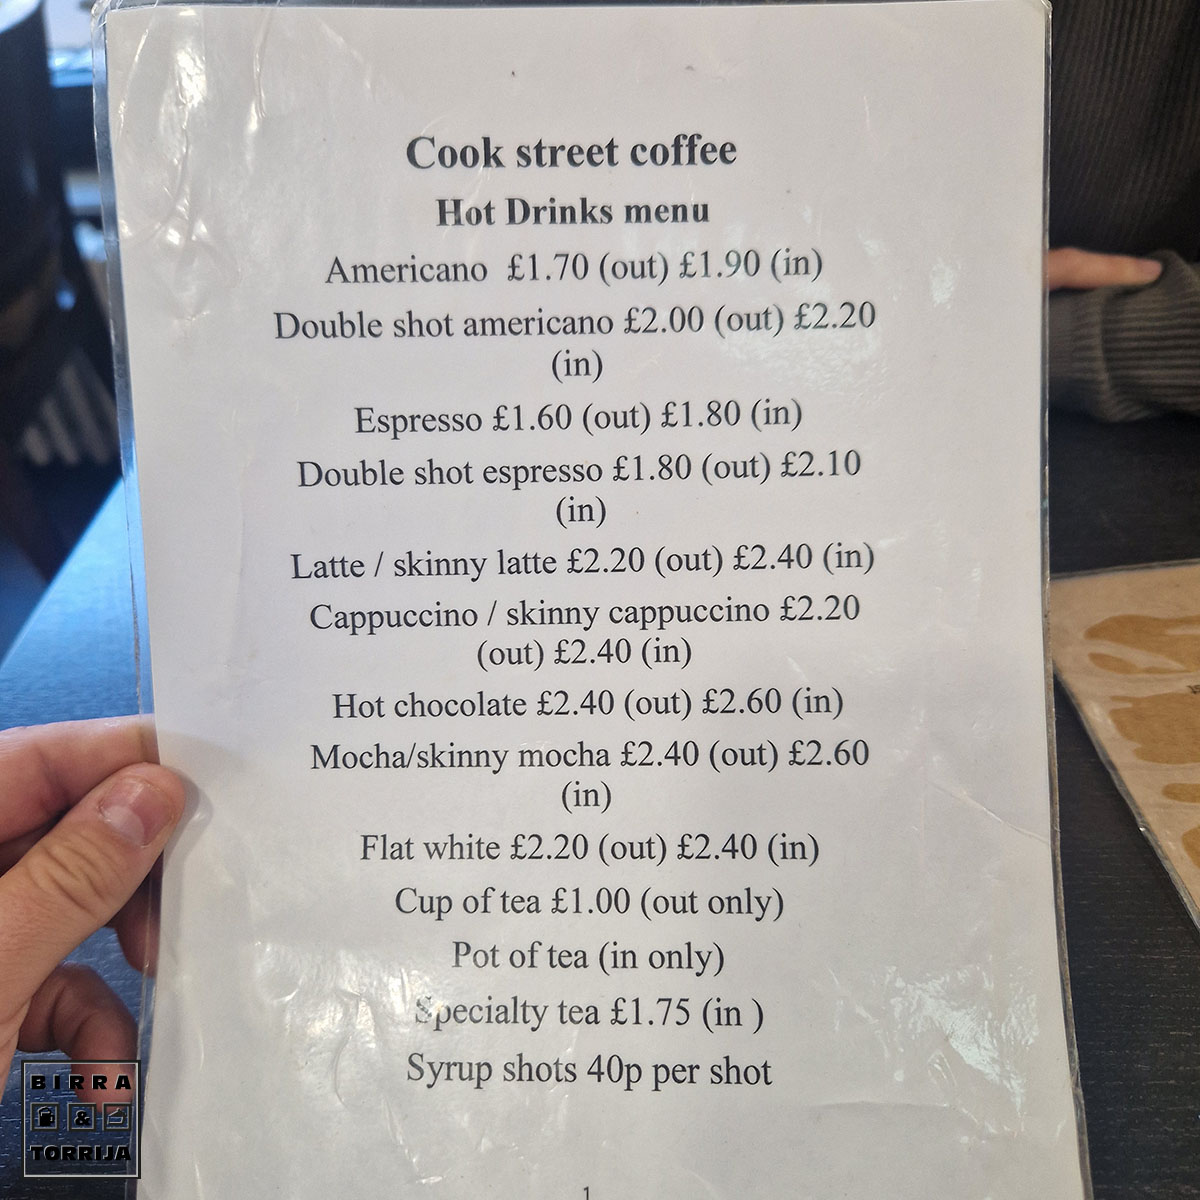 Cook street coffee
Hot Drinks menu
Americano £1.70 (out) £1.90 (in)
Double shot americano £2.00 (out) £2.20
(in)
Espresso £1.60 (out) £1.80 (in)
Double shot espresso £1.80 (out) £2.10
(in)
Latte / skinny latte £2.20 (out) £2.40 (in)
Cappuccino / skinny cappuccino £2.20
(out) £2.40 (in)
Hot chocolate £2.40 (out) £2.60 (in)
Mocha/skinny mocha £2.40 (out) £2.60
(in)
Flat white £2.20 (out) £2.40 (in)
Cup of tea £1.00 (out only)
Pot of tea (in only)
Specialty tea £1.75 (in )
Syrup shots 40p per shot
1
BIRRA
&
TORRIJA